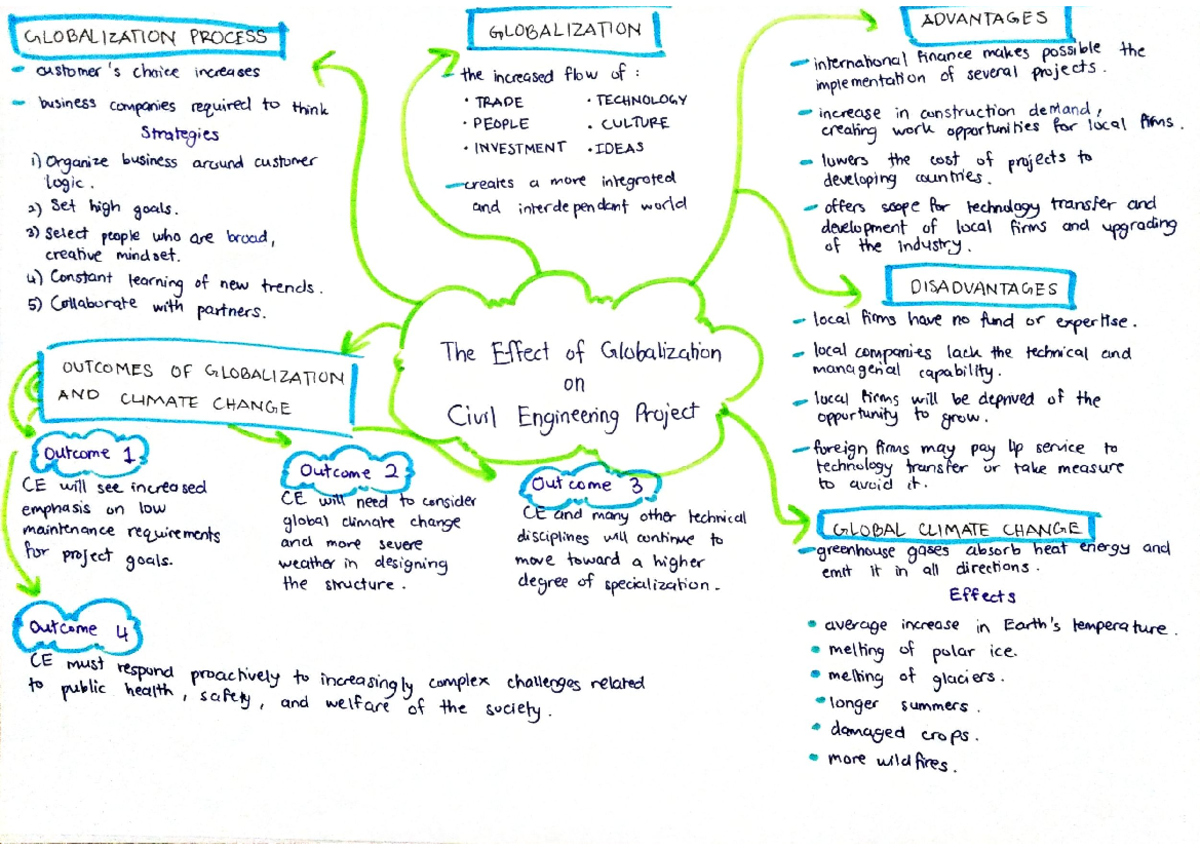 GLOBALIZATION PROCESS
- customer's choice increases
- business companies required to think
Strategies
1) Organize business around customer
logic.
2) Set high goals.
3) Select people who are broad,
creative mindset.
4) Constant learning of new trends.
5) Collaborate with partners.
GLOBALIZATION
- the increased flow of :
• TRADE
• TECHNOLOGY
• PEOPLE
• CULTURE
• INVESTMENT
• IDEAS
- creates a more integrated
and interdependant world
ADVANTAGES
- international finance makes possible the
implementation of several projects.
- increase in construction demand,
creating work opportunities for local firms.
- lowers the cost of projects to
developing countries.
- offers scope for technology transfer and
development of local firms and upgrading
of the industry.
DISADVANTAGES
- local firms have no fund or expertise.
- local companies lack the technical and
managerial capability.
- local firms will be deprived of the
opportunity to grow.
- foreign firms may pay lip service to
technology transfer or take measure
to avoid it.
The Effect of Globalization
on
Civil Engineering Project
OUTCOMES OF GLOBALIZATION
AND CLIMATE CHANGE
Outcome 1
CE will see increased
emphasis on low
maintenance requirements
for project goals.
Outcome 2
CE will need to consider
global climate change
and more severe
weather in designing
the structure.
Outcome 3
CE and many other technical
disciplines will continue to
move toward a higher
degree of specialization.
Outcome 4
CE must respond proactively to increasingly complex challenges related
to public health, safety, and welfare of the society.
GLOBAL CLIMATE CHANGE
- greenhouse gases absorb heat energy and
emit it in all directions.
Effects
• average increase in Earth's temperature.
• melting of polar ice.
• melting of glaciers.
• longer summers.
• damaged crops.
• more wildfires.